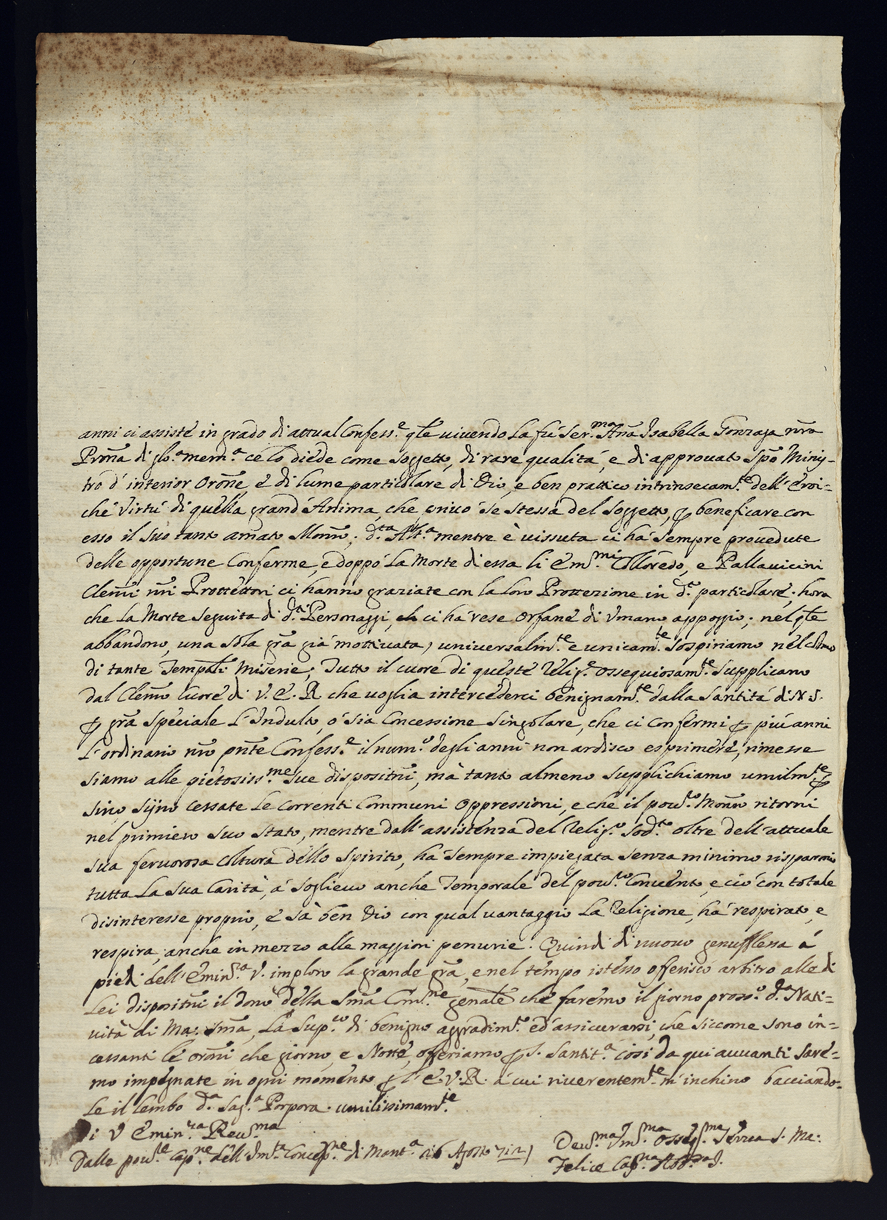 anni ci assisté in grado di attual Confess.e q̃le vivendo La fù Ser.ma Añа Isabella Gonzaga ñra
Pr̃na di glo.a mem.a ce lo diede come Soggetto, di rare qualità, e di approvato Spõ Minis-
tro d'interior Oroñe, e di lume particolare di Dio, e ben prattico intrinsecam.te dell'Eroi=
che Virtù di quella grand'Anima che unico se stessa del Soggetto, ꝑ beneficare con
esso il suo tanto amato Moñro; d.ta Alt.a mentre è vissuta ci hà sempre provedute
delle opportune Conferme, e doppò La Morte di essa li Em.mi Colloredo, e Pallavicini
Cleñi ñri Prottettori ci hanno graziate con la loro Protezione in d.o particolare; hora
che La Morte Seguita di d.i Personaggi, ci hà rese Orfane di Umano appoggio; nel q̃le
abbandono, una sola gr̃a già mottivata, universalm.te e unicam.te Sospiriamo nel colmo
di tante Temp̃ali Miserie; Tutto il cuore di queste Relig.e Ossequiosam.te Supplicano
dal Cleñio Cuore di V. E. R. che voglia intercederci benignam.te dalla Santità di N. S.
ꝑ gr̃a Speciale L'Indulto, ò sia Concessione Singolare, che ci Confermi ꝑ più anni
L'ordinario ñro p̃nte Confess.e il num.o degli anni non ardisco esprimere, rimesse
siamo alle pietosiss.me sue dispositñi, mà tanto almeno Supplichiamo umilm.te ꝑ
sino sijno cessate Le Correnti Communi Oppressioni, e che il pov.o Moñro ritorni
nel primiero suo stato, mentre dall'assistenza del Relig.o sod.o oltre dell'attuale
sua fervorosa coltura dello Spirito, hà sempre impiegata senza minimo risparmio
tutta La sua Carità, à Soglievo anche Temporale del pov.o Convento, e ciò con totale
disinteresse proprio, e Sà ben Dio con qual vantaggio La Religione, hà respirato, e
respira, anche in mezzo alle maggiori penurie. Quindi di nuovo genuflessa à
piedi dell'Emin.a V. imploro la grande gr̃a, e nel tempo istesso offerisco arbitro alle di
Lei dispositñi il dono della Sm̃a Com.ne geñale che faremo il giorno pross.o d.a Nati=
vità di Ma: Sm̃a, La Sup.co di benigno aggradim.to ed'assicurarsi, che siccome sono in=
cessanti le oroñi che giorno, e Notte offeriamo ꝑ S. Santit.a così da qui avvanti sare=
mo impegnate in ogni momento ꝑ l'E. V. R. à cui riverentem.te m'inchino bacciando=
Le il lembo d.a Sag.a Porpora umilissimam.te
Di V Emin.za Rev.ma
Dalle pov.e Cap.ne dell'Im.ta Concep.ne di Mant.a 26 Agosto
Dev.ma Um.ma Osseq.ma Serva S. Ma:
Felice Cap.na